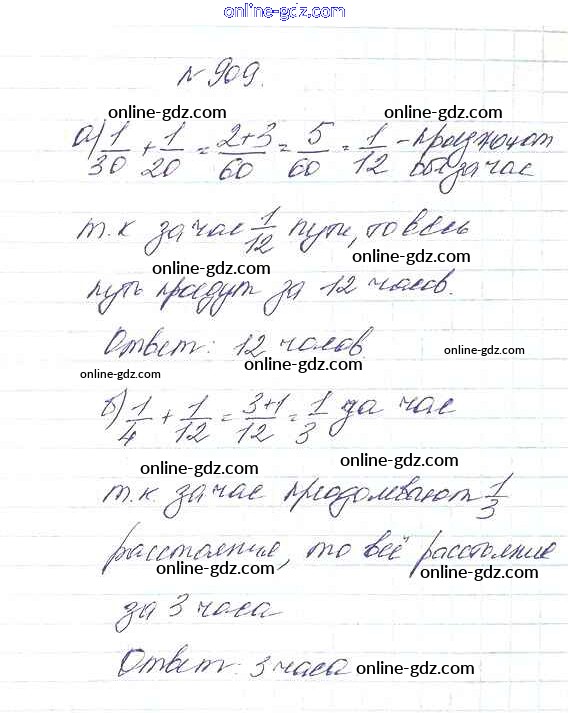 online-gdz.com
№ 909.
online-gdz.com online-gdz.com
а) 1/30 + 1/20 = 2+3/60 = 5/60 = 1/12 - проезжают
online-gdz.com обе за час
т.к за час 1/12 пути, то весь
online-gdz.com
путь проедут за 12 часов.
online-gdz.com
Ответ: 12 часов.
online-gdz.com
online-gdz.com
online-gdz.com
б) 1/4 + 1/12 = 3+1/12 = 1/3 за час
online-gdz.com online-gdz.com
т.к. за час преодолевают 1/3
online-gdz.com
расстояния, то всё расстояние
online-gdz.com online-gdz.com
за 3 часа
online-gdz.com
Ответ: 3 часа online-gdz.com